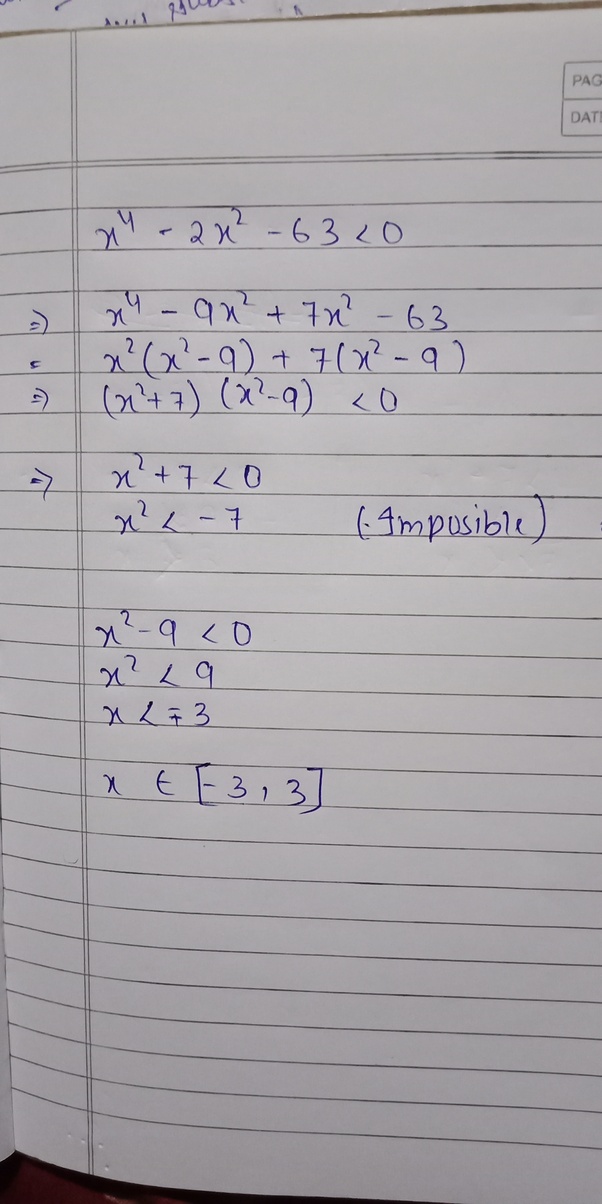 PAG
DAT
x⁴ - 2x² - 63 < 0
⇒ x⁴ - 9x² + 7x² - 63
= x²(x² - 9) + 7(x² - 9)
⇒ (x² + 7) (x² - 9) < 0
⇒ x² + 7 < 0
x² < - 7 (Imposible)
x² - 9 < 0
x² < 9
x < ∓ 3
x ∈ [-3, 3]